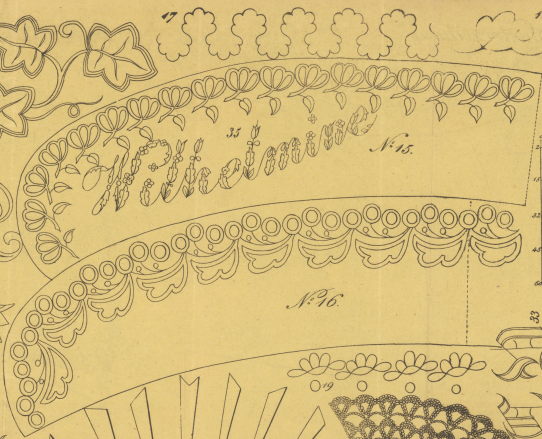 17
1
35
Wilhelmine
No. 15.
No. 16.
33
19